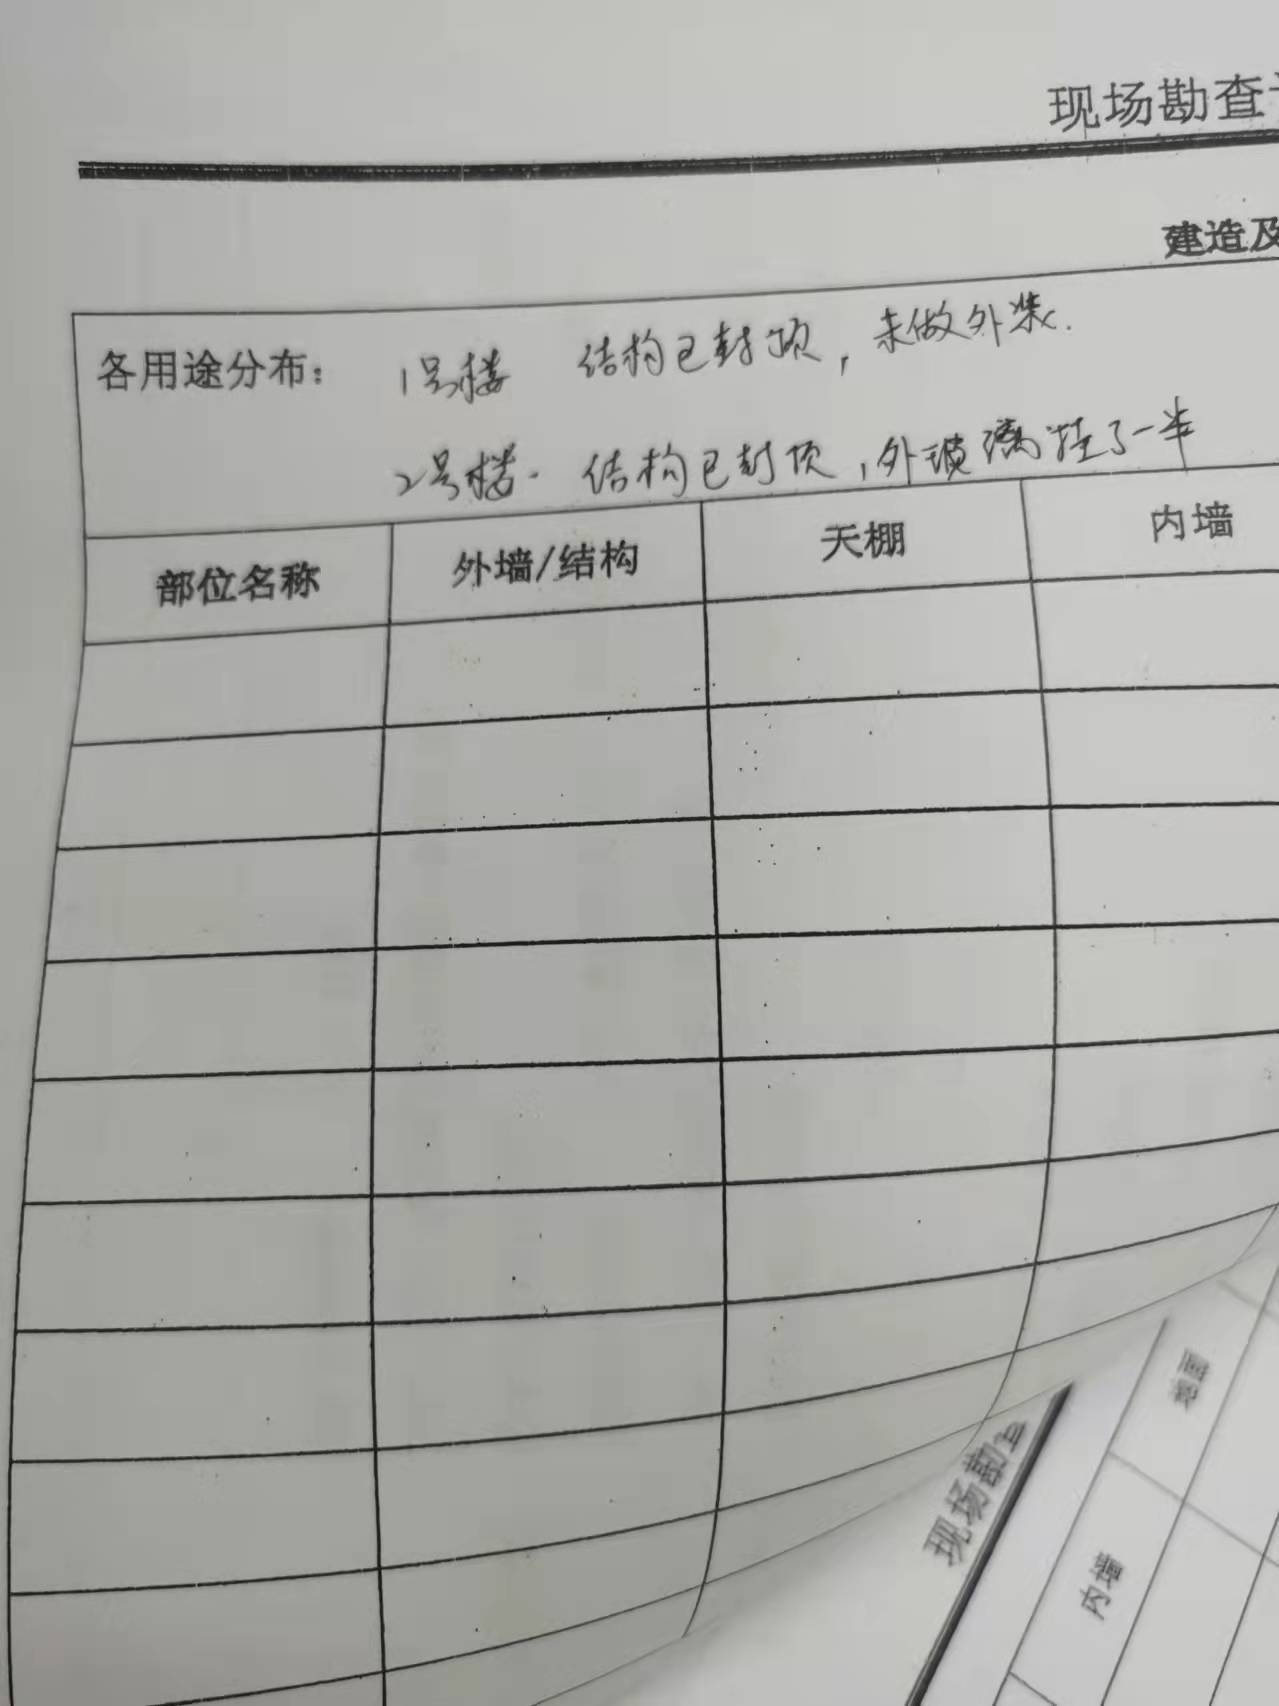 现场勘查
建造及
各用途分布： 1号楼 结构已封顶，未做外装.
2号楼. 结构已封顶，外玻璃挂了一半
部位名称 外墙/结构 天棚 内墙
地面
现场勘查
内墙